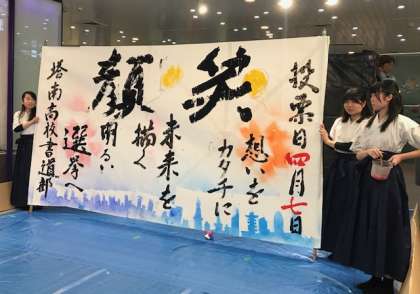 投票日四月七日
笑顔
想いを
カタチに
未来を
描く
明るい
選挙へ
塔南高校書道部